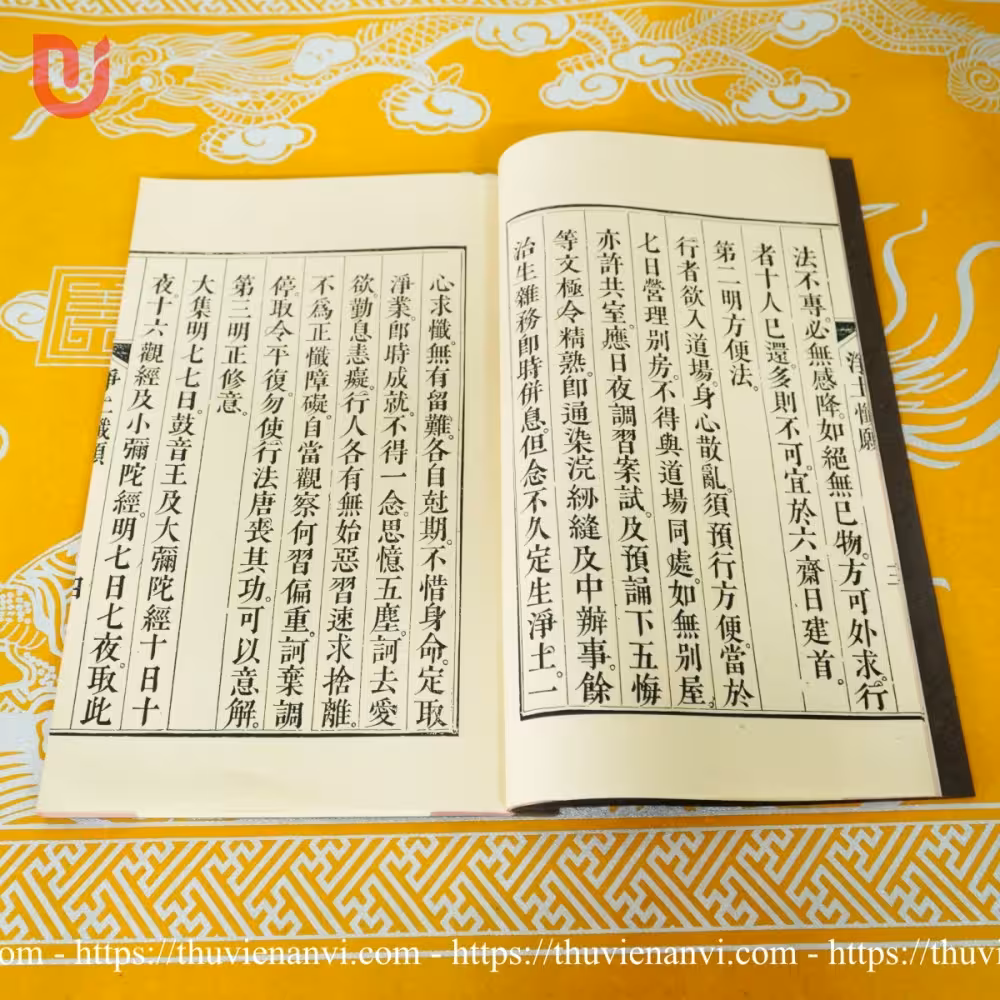 淨土懺願
三
法不專。必無感降。如絕無已物。方可外求。行
者十人已還。多則不可。宜於六齋日建首。
第二明方便法。
行者欲入道場。身心散亂。須預行方便。當於
七日營理別房。不得與道場同處。如無別屋。
亦許共室。應日夜調習案試。及預誦下五悔
等文極令精熟。卽通染浣紉縫及中辦事。餘
治生雜務卽時併息。但念不久定生淨土。一
心求懺。無有留難。各自尅期。不惜身命。定取
淨業。卽時成就。不得一念。思憶五塵。訶去愛
欲勤息恚癡。行人各有無始惡習速求捨離。
不爲正懺障礙。自當觀察何習偏重。訶棄調
停。取令平復。勿使行法唐喪其功。可以意解。
第三明正修意。
大集明七七日。鼓音王及大彌陀經十日十
夜。十六觀經及小彌陀經。明七日七夜。取此
淨土懺願
四
om - https://thuvienanvi.com - https://thuvienanvi.com - https://thuvi